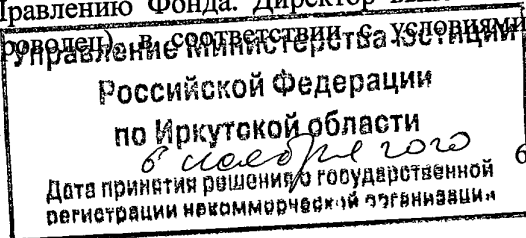 Правлению Фонда. Директор
в соответствии с условиями
Управление Министерства юстиции
Российской Федерации
по Иркутской области
6 ноября 2020
Дата принятия решения о государственной
регистрации некоммерческой организации